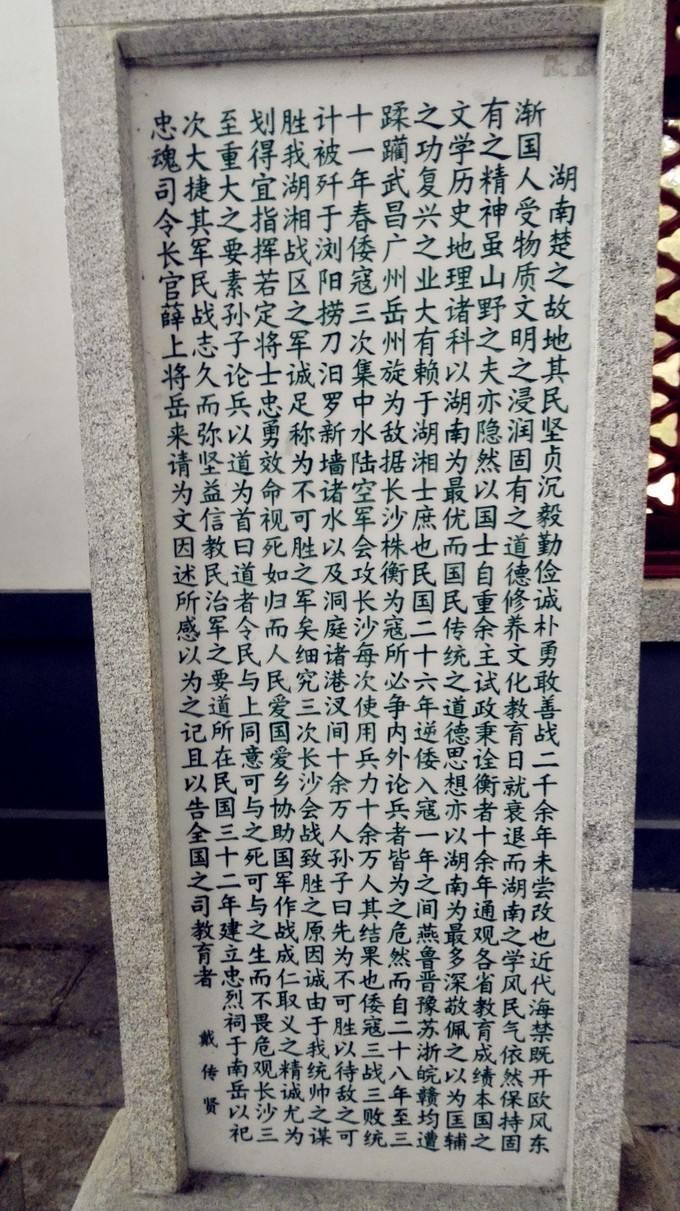 湖南楚之故地其民坚贞沉毅勤俭诚朴勇敢善战二千余年未尝改也近代海禁既开欧风东
渐国人受物质文明之浸润固有之道德修养文化教育日就衰退而湖南之学风民气依然保持固
有之精神虽山野之夫亦隐然以国士自重余主试政秉诠衡者十余年通观各省教育成绩本国之
文学历史地理诸科以湖南为最优而国民传统之道德思想亦以湖南为最多深敬佩之以为匡辅
之功复兴之业大有赖于湖湘士庶也民国二十六年逆倭入寇一年之间燕鲁晋豫苏浙皖赣均遭
蹂躏武昌广州岳州旋为敌据长沙株衡为寇所必争内外论兵者皆为之危然而自二十八年至三
十一年春倭寇三次集中水陆空军会攻长沙每次使用兵力十余万人其结果也倭寇三战三败统
计被歼于浏阳捞刀汨罗新墙诸水以及洞庭诸港汊间十余万人孙子曰先为不可胜以待敌之可
胜我湖湘战区之军诚足称为不可胜之军矣细究三次长沙会战致胜之原因诚由于我统帅之谋
划得宜指挥若定将士忠勇效命视死如归而人民爱国爱乡协助国军作战成仁取义之精诚尤为
至重大之要素孙子论兵以道为首曰道者令民与上同意可与之死可与之生而不畏危观长沙三
次大捷其军民战志久而弥坚益信教民治军之要道所在民国三十二年建立忠烈祠于南岳以祀
忠魂司令长官薛上将岳来请为文因述所感以为之记且以告全国之司教育者
戴传贤